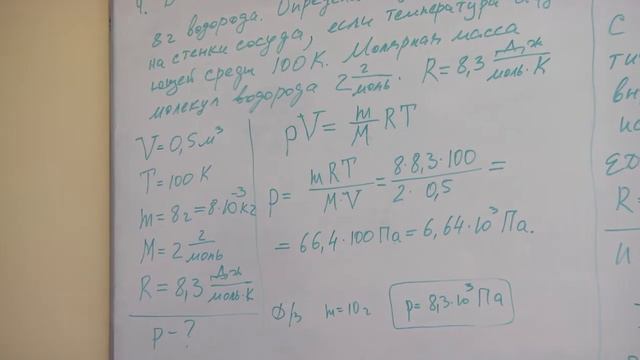 4.
8г водорода. Опреде
на стенки сосуда, если температура
ющей среды 100 К. Молярная масса
молекул водорода 2 г/моль. R = 8,3 Дж/моль·К
V = 0,5 м³
T = 100 К
m = 8г = 8·10⁻³ кг
M = 2 г/моль
R = 8,3 Дж/моль·К
p - ?
pV = m/M RT
p = mRT/M·V = 8·8,3·100/2·0,5 =
= 66,4·100 Па = 6,64·10³ Па.
Ф/з m = 10г p = 8,3·10³ Па
С
ти
вы
ис
R =